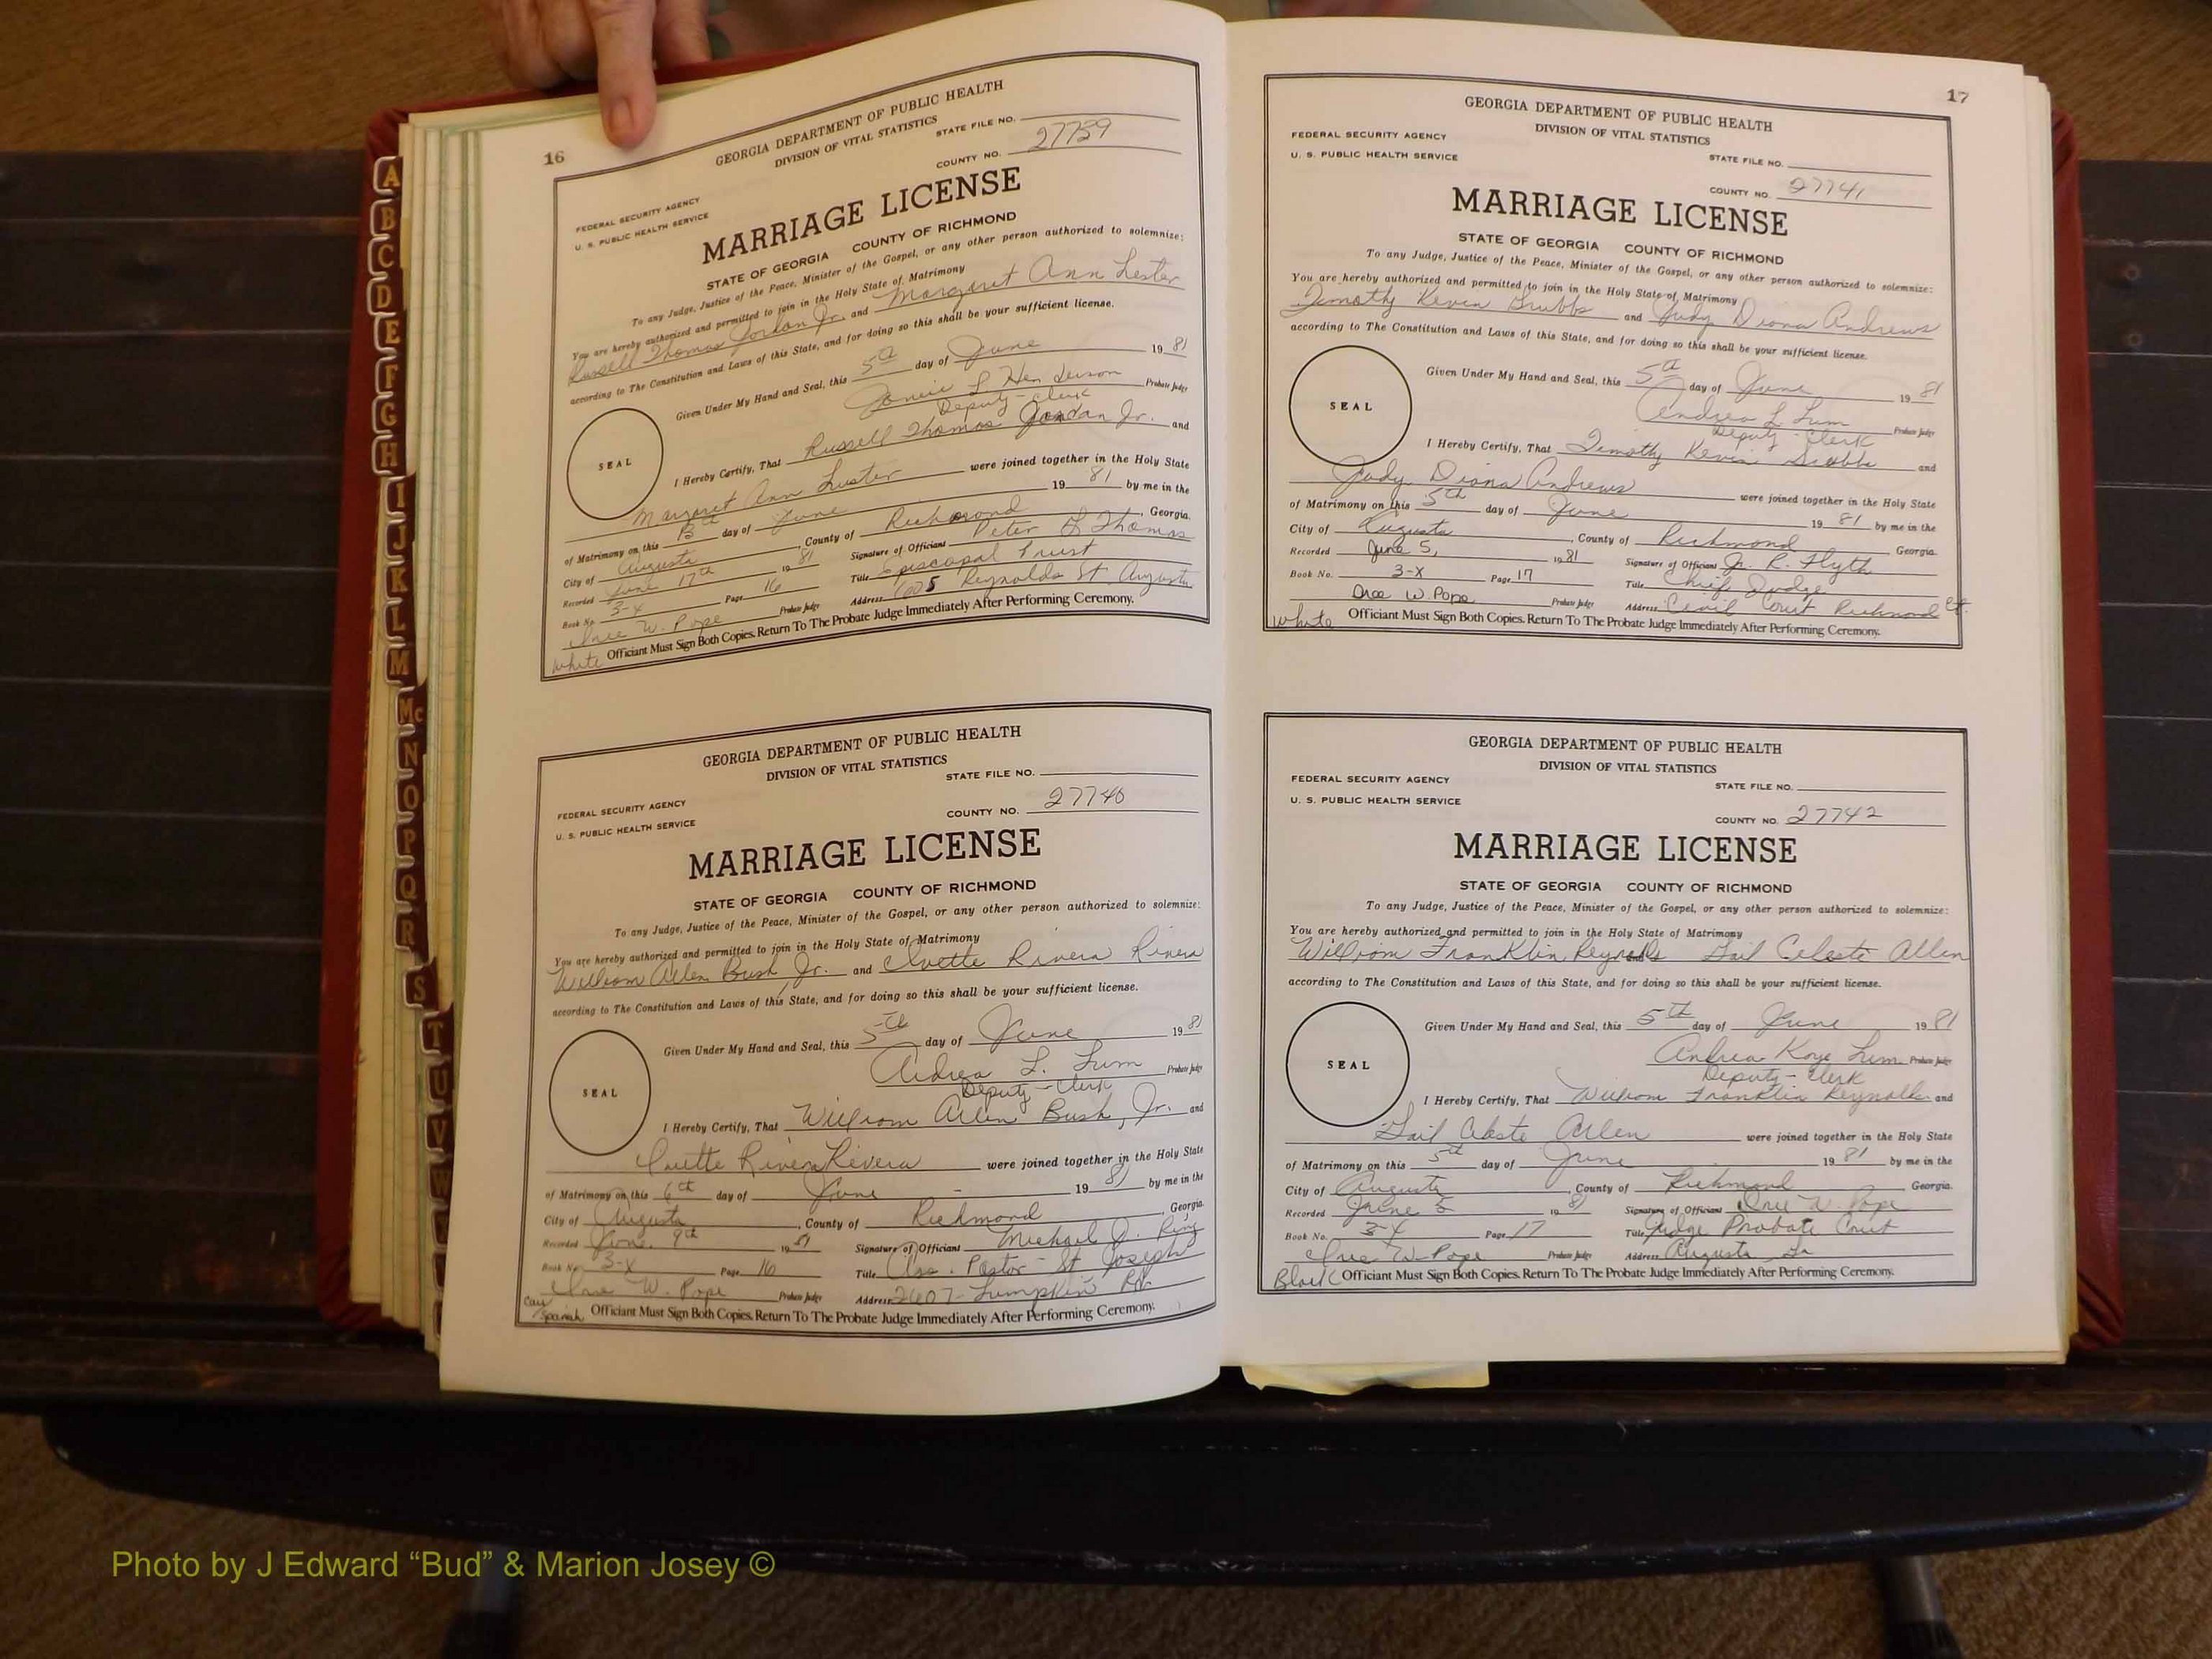 16
GEORGIA DEPARTMENT OF PUBLIC HEALTH
DIVISION OF VITAL STATISTICS
STATE FILE NO.
COUNTY NO. 27739
FEDERAL SECURITY AGENCY
U. S. PUBLIC HEALTH SERVICE
MARRIAGE LICENSE
STATE OF GEORGIA COUNTY OF RICHMOND
To any Judge, Justice of the Peace, Minister of the Gospel, or any other person authorized to solemnize:
You are hereby authorized and permitted to join in the Holy State of Matrimony
Russell Thomas Jordan Jr. and Margaret Ann Lester
according to The Constitution and Laws of this State, and for doing so this shall be your sufficient license.
Given Under My Hand and Seal, this 5th day of June 19 81
L Henderson Probate Judge
Deputy-Clerk
SEAL
I Hereby Certify, That Russell Thomas Jordan Jr. and
Margaret Ann Luster were joined together in the Holy State
of Matrimony on this 13th day of June 19 81 by me in the
City of Augusta, County of Richmond, Georgia.
Recorded June 17th 19 81 Signature of Officiant Peter Thomas
Book No. 3-X Page 16 Title Episcopal
Probate Judge Address 605 Reynolds St. Augusta
W. Pope
White Officiant Must Sign Both Copies. Return To The Probate Judge Immediately After Performing Ceremony.
GEORGIA DEPARTMENT OF PUBLIC HEALTH
DIVISION OF VITAL STATISTICS
STATE FILE NO.
FEDERAL SECURITY AGENCY
U. S. PUBLIC HEALTH SERVICE
COUNTY NO. 27740
MARRIAGE LICENSE
STATE OF GEORGIA COUNTY OF RICHMOND
To any Judge, Justice of the Peace, Minister of the Gospel, or any other person authorized to solemnize:
You are hereby authorized and permitted to join in the Holy State of Matrimony
William Allen Bush Jr. and Ivette Rivera Rivera
according to The Constitution and Laws of this State, and for doing so this shall be your sufficient license.
Given Under My Hand and Seal, this 5th day of June 19 81
Andrea L. Lum Probate Judge
Deputy-Clerk
SEAL
I Hereby Certify, That William Allen Bush, Jr. and
Ivette Rivera Rivera were joined together in the Holy State
of Matrimony on this 6th day of June 19 81 by me in the
City of Augusta, County of Richmond, Georgia.
Recorded June 9th 19 81 Signature of Officiant Michael J.
Book No. 3-X Page 16 Title Ass. Pastor - St Joseph
W. Pope Probate Judge Address 2607 Lumpkin Rd.
Cau/Spanish Officiant Must Sign Both Copies. Return To The Probate Judge Immediately After Performing Ceremony.
17
GEORGIA DEPARTMENT OF PUBLIC HEALTH
FEDERAL SECURITY AGENCY DIVISION OF VITAL STATISTICS
U. S. PUBLIC HEALTH SERVICE STATE FILE NO.
COUNTY NO. 27741
MARRIAGE LICENSE
STATE OF GEORGIA COUNTY OF RICHMOND
To any Judge, Justice of the Peace, Minister of the Gospel, or any other person authorized to solemnize:
You are hereby authorized and permitted to join in the Holy State of Matrimony
Timothy Kevin and Judy Diona Andrews
according to The Constitution and Laws of this State, and for doing so this shall be your sufficient license.
Given Under My Hand and Seal, this 5th day of June 19 81
Andrea L Lum Probate Judge
Deputy-Clerk
SEAL
I Hereby Certify, That Timothy Kevin and
Judy Diona Andrews were joined together in the Holy State
of Matrimony on this 5th day of June 19 81 by me in the
City of Augusta, County of Richmond Georgia.
Recorded June 5, 19 81 Signature of Officiant R. Flyth
Book No. 3-X Page 17 Title Chief Judge
W. Pope Probate Judge Address Civil Court Richmond Ct.
White Officiant Must Sign Both Copies. Return To The Probate Judge Immediately After Performing Ceremony.
GEORGIA DEPARTMENT OF PUBLIC HEALTH
DIVISION OF VITAL STATISTICS
FEDERAL SECURITY AGENCY
U. S. PUBLIC HEALTH SERVICE STATE FILE NO.
COUNTY NO. 27742
MARRIAGE LICENSE
STATE OF GEORGIA COUNTY OF RICHMOND
To any Judge, Justice of the Peace, Minister of the Gospel, or any other person authorized to solemnize:
You are hereby authorized and permitted to join in the Holy State of Matrimony
William Franklin Reynolds and Gail Celeste Allen
according to The Constitution and Laws of this State, and for doing so this shall be your sufficient license.
Given Under My Hand and Seal, this 5th day of June 19 81
Andrea Kaye Lum Probate Judge
Deputy-Clerk
SEAL
I Hereby Certify, That William Franklin Reynolds and
Gail Celeste Allen were joined together in the Holy State
of Matrimony on this 5th day of June 19 81 by me in the
City of Augusta, County of Richmond Georgia.
Recorded June 5 19 81 Signature of Officiant W. Pope
Book No. 3-X Page 17 Title Judge Probate Court
W. Pope Probate Judge Address Augusta Ga
Black Officiant Must Sign Both Copies. Return To The Probate Judge Immediately After Performing Ceremony.
A
B
C
D
E
F
G
H
I
J
K
L
M
Mc
N
O
P
Q
R
S
T
U
V
W
Photo by J Edward “Bud” & Marion Josey ©